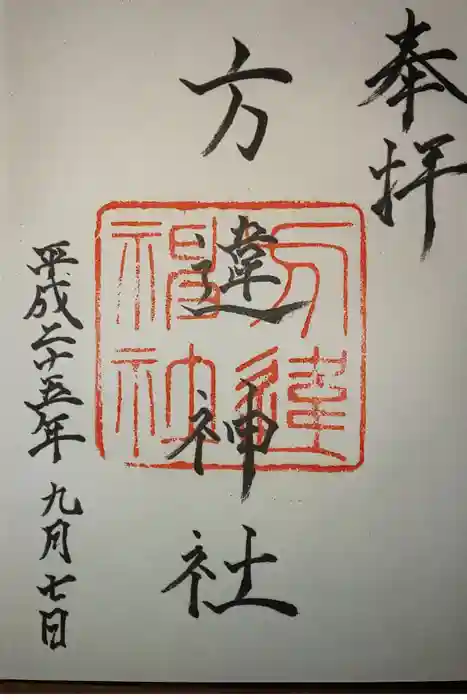 奉拝
方違神社
方違神社
平成二十五年九月七日